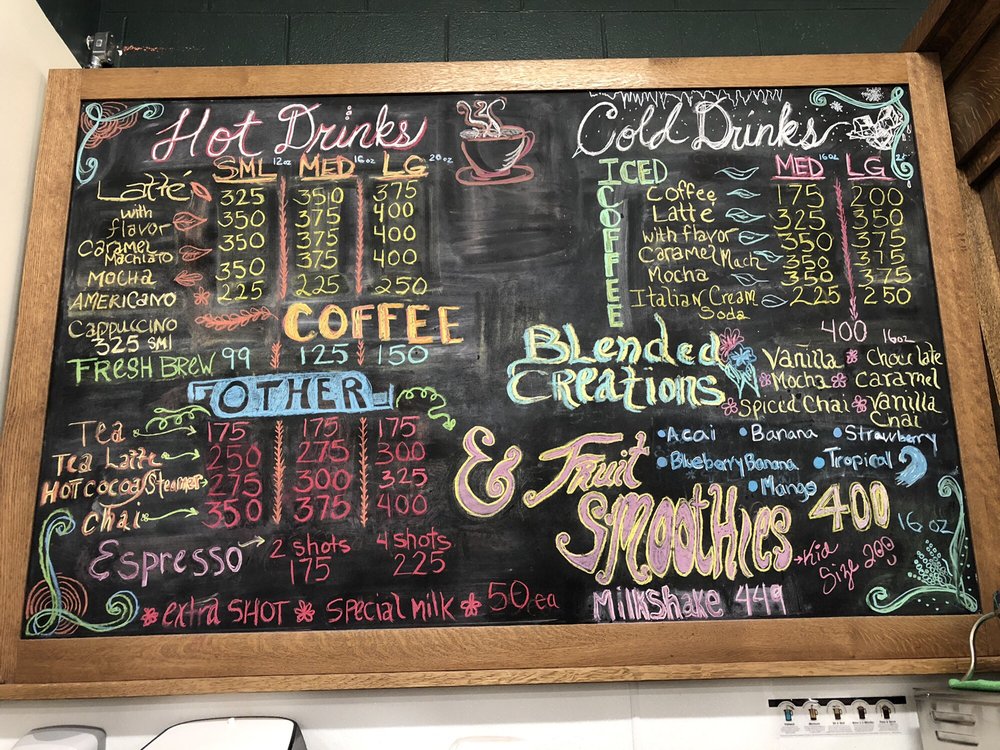 Hot Drinks
SML 12oz MED 16oz LG 20oz
Latté 325 350 375
with flavor 350 375 400
Caramel Machiato 350 375 400
Mocha 350 375 400
AMERICANO 225 225 250
Cappuccino
325 SMl
COFFEE
FRESH BREW 99 125 150
OTHER
Tea 175 175 175
Tea Latte 250 275 300
HOT cocoa/Steamer 275 300 325
Chai 350 375 400
Espresso 2 shots 4 shots
175 225
extra SHOT special milk 50 ea
Cold Drinks
ICED COFFEE
MED 16oz LG
Coffee 175 200
Latte 325 350
with flavor 350 375
Caramel Mach 350 375
Mocha 350 375
Italian Cream Soda 225 250
Blended Creations
400 16oz
Vanilla Chocolate
Mocha Caramel
Spiced Chai Vanilla Chai
& Fruit Smoothies
Acai Banana Strawberry
Blueberry Banana Tropical
Mango
400 16 oz
Kid Size 200
Milkshake 449